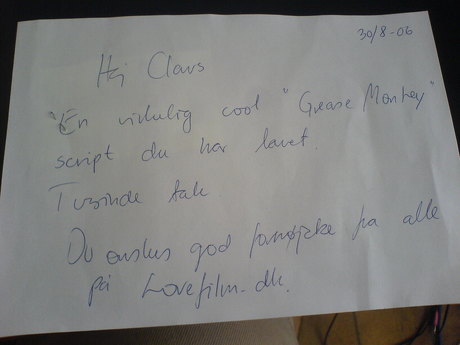 30/8-06
Hej Claus
En virkelig cool "Grease Monkey"
script du har lavet.
Tusinde tak
Du ønskes god fra alle
på Lovefilm.dk.